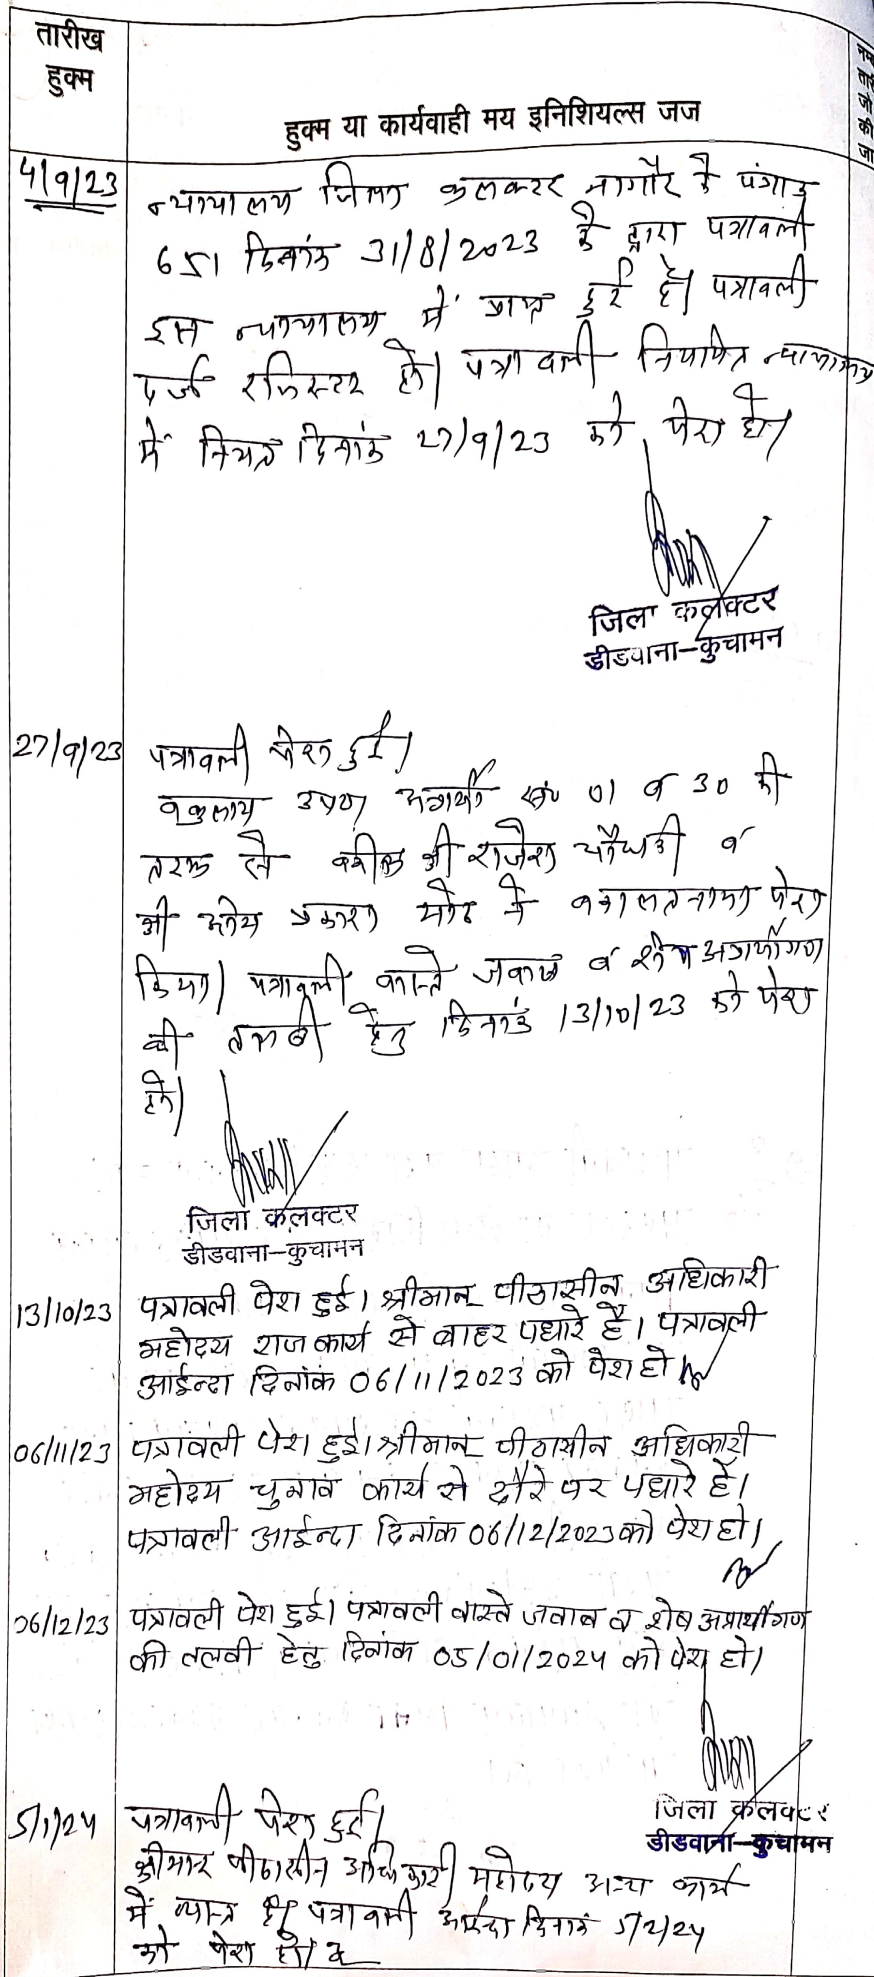 तारीख
हुक्म
हुक्म या कार्यवाही मय इनिशियल्स जज
4/9/23
न्यायालय जिला कलक्टर नागौर के पंगांउ
651 दिनांक 31/8/2023 के द्वारा पत्रावली
इस न्यायालय में प्राप्त हुई है। पत्रावली
दर्ज रजिस्टर हो। पत्रावली नियमित न्यायालय
में नियत दिनांक 27/9/23 को पेश हो।
जिला कलक्टर
डीडवाना-कुचामन
27/9/23
पत्रावली पेश हुई।
वकुलाय उप0 अप्रार्थी सं0 01 व 30 की
तरफ से वकील श्री राजेश चौधरी व
श्री प्रकाश मोट ने वकालतनामा पेश
किया। पत्रावली वास्ते जवाब व शेष अप्रार्थीगण
की तलबी हेतु दिनांक 13/10/23 को पेश
हो।
जिला कलक्टर
डीडवाना-कुचामन
13/10/23
पत्रावली पेश हुई। श्रीमान पीठासीन अधिकारी
महोदय राजकार्य से बाहर पधारे है। पत्रावली
आईन्दा दिनांक 06/11/2023 को पेश हो
06/11/23
पत्रावली पेश हुई। श्रीमान पीठासीन अधिकारी
महोदय चुनाव कार्य से दौरे पर पधारे हैं।
पत्रावली आईन्दा दिनांक 06/12/2023 को पेश हो।
06/12/23
पत्रावली पेश हुई। पत्रावली वास्ते जवाब व शेष अप्रार्थीगण
की तलवी हेतु दिनांक 05/01/2024 को पेश हो।
जिला कलक्टर
डीडवाना-कुचामन
5/1/24
पत्रावली पेश हुई।
श्रीमान पीठासीन अधिकारी महोदय अन्य कार्य
में व्यस्त है। पत्रावली आईन्दा दिनांक 5/2/24
को पेश हो।